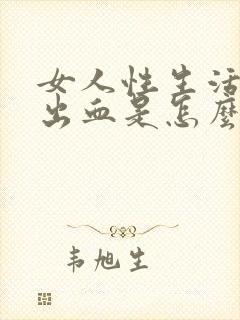 女人性生活
出血是怎麼
韦旭生